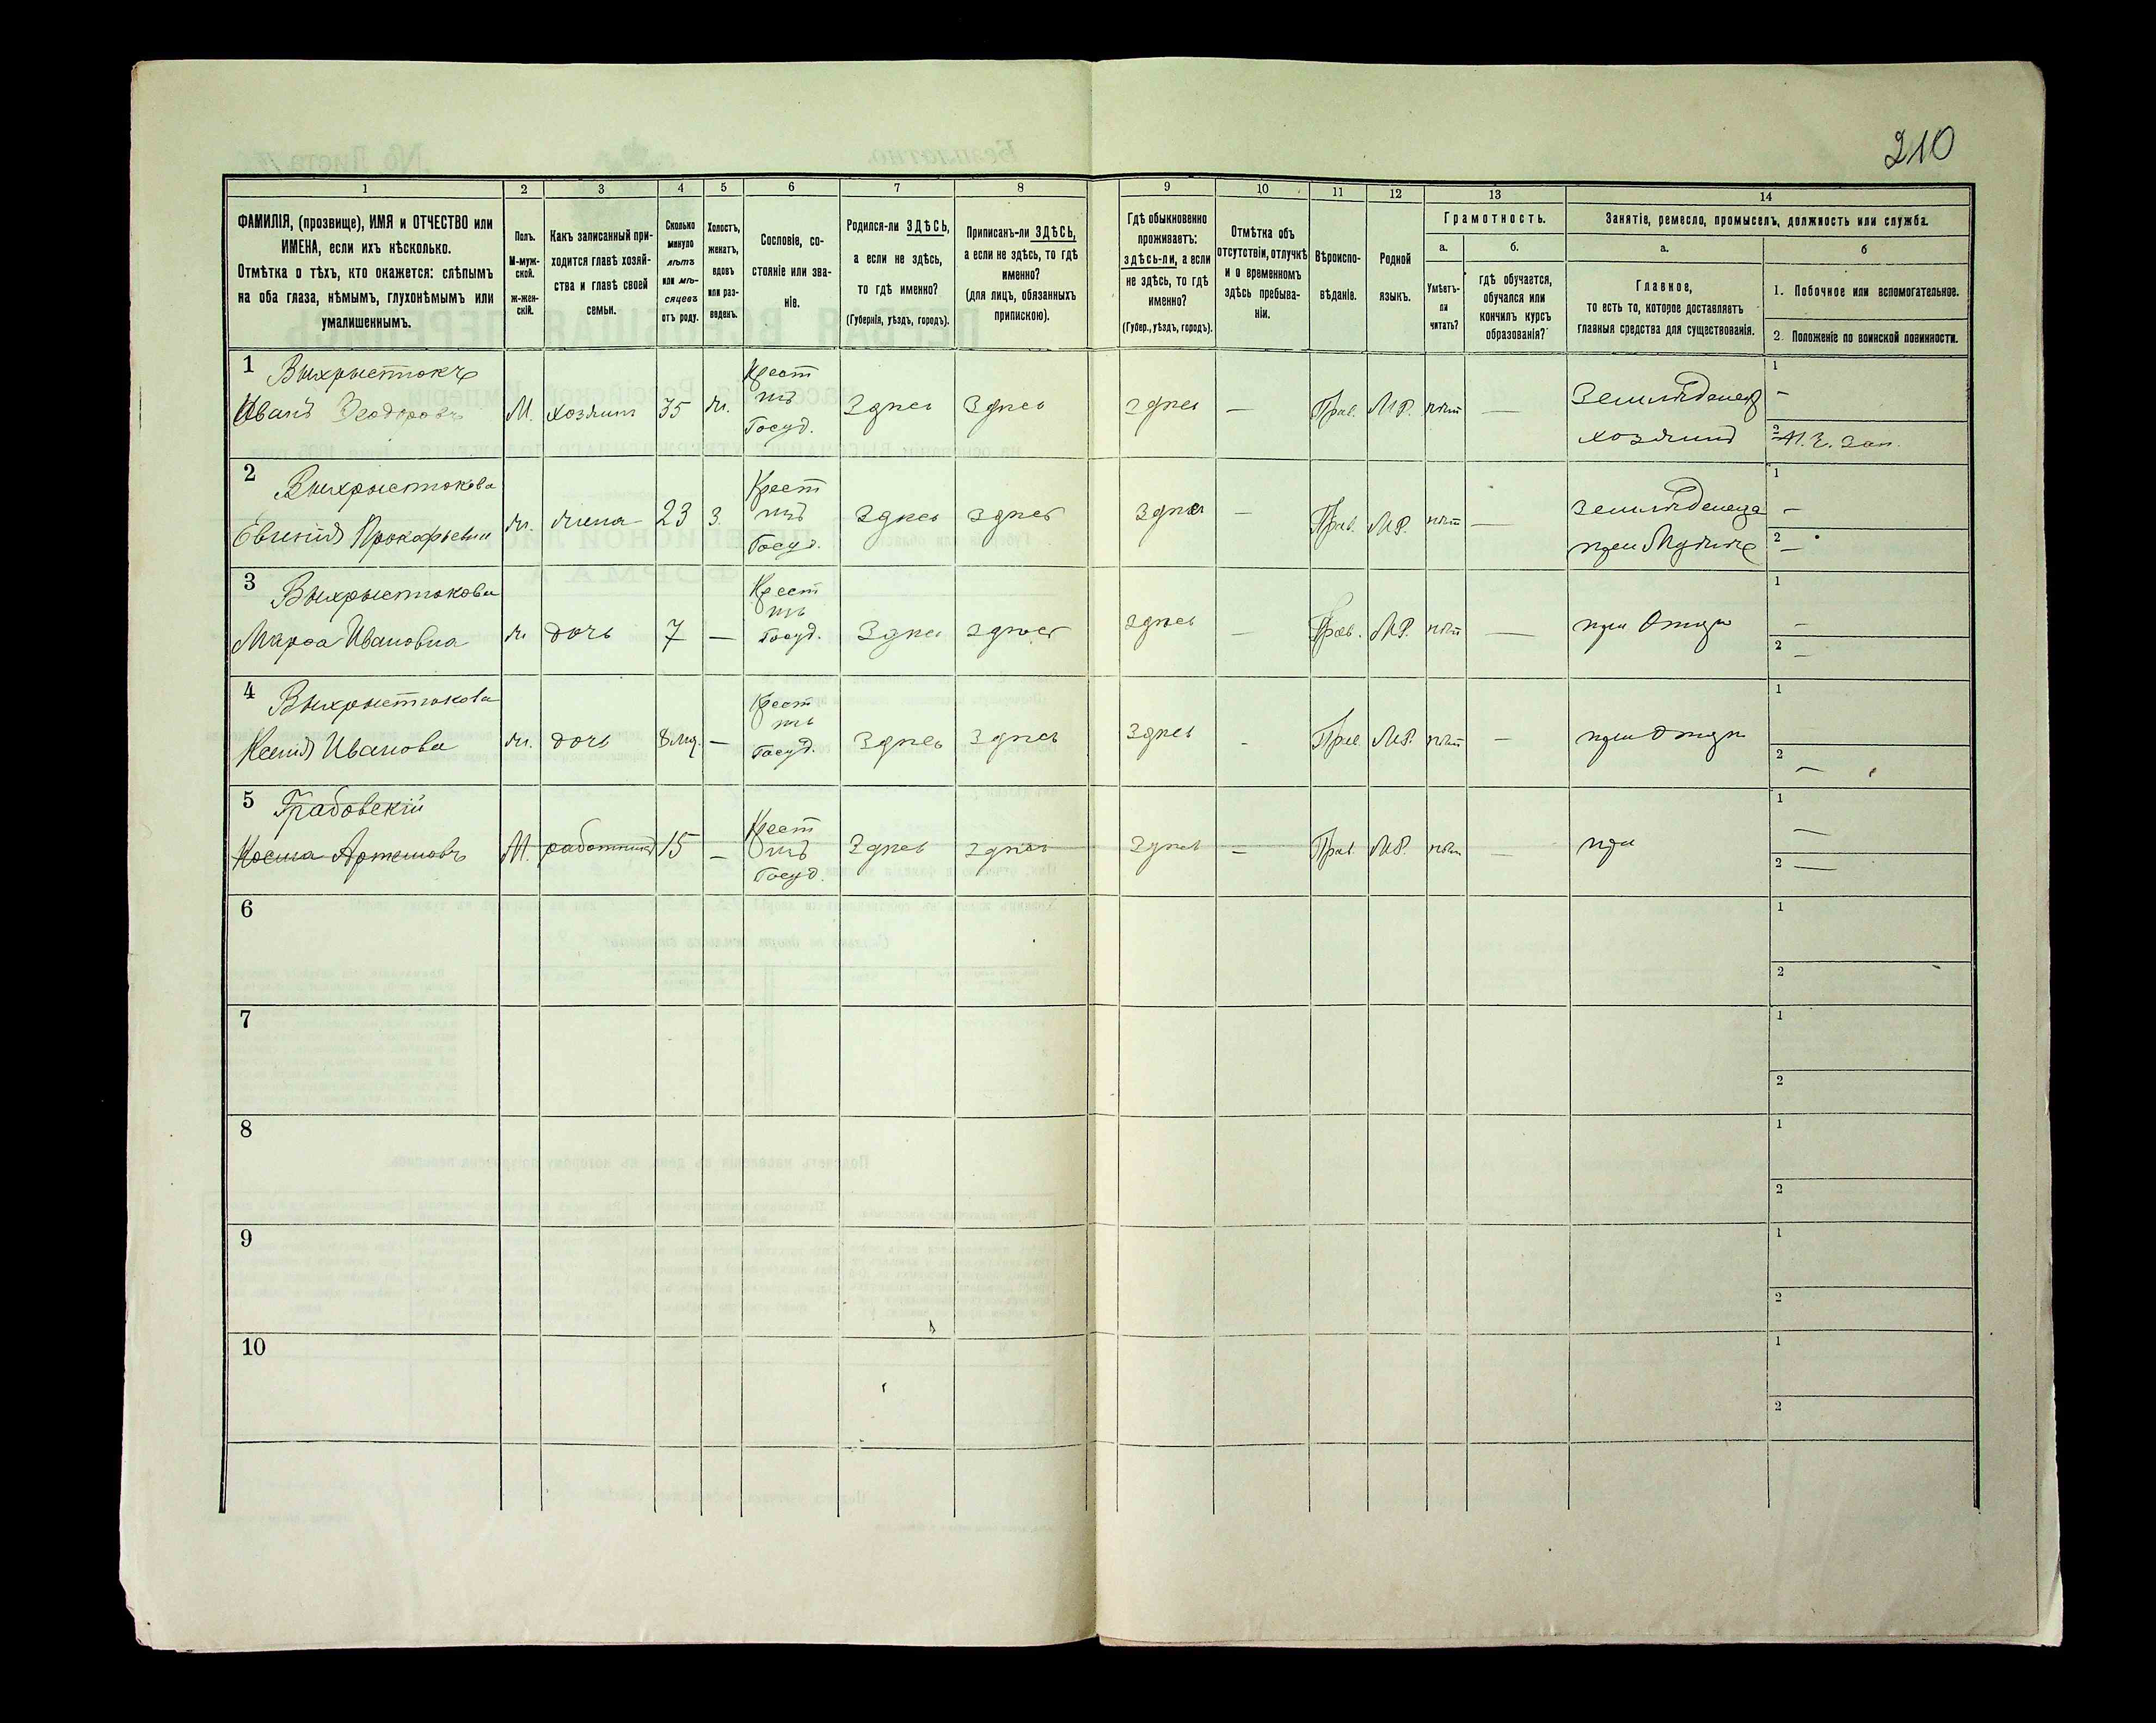 210
1
2
3
4
5
6
7
8
9
10
11
12
13
14
ФАМИЛІЯ, (прозвище), ИМЯ и ОТЧЕСТВО или
ИМЕНА, если ихъ нѣсколько.
Отмѣтка о тѣхъ, кто окажется: слѣпымъ
на оба глаза, нѣмымъ, глухонѣмымъ или
умалишеннымъ.
Полъ.
М-муж-
ской.
ж-жен-
скій.
Какъ записанный при-
ходится главѣ хозяй-
ства и главѣ своей
семьи.
Сколько
минуло
лѣтъ
или мѣ-
сяцевъ
отъ роду.
Холостъ,
женатъ,
вдовъ
или раз-
веденъ.
Сословіе, со-
стояніе или зва-
ніе.
Родился-ли ЗДѢСЬ,
а если не здѣсь,
то гдѣ именно?
(Губернія, уѣздъ, городъ).
Приписанъ-ли ЗДѢСЬ,
а если не здѣсь, то гдѣ
именно?
(для лицъ, обязанныхъ
припискою).
Гдѣ обыкновенно
проживаетъ:
здѣсь-ли, а если
не здѣсь, то гдѣ
именно?
(Губер., уѣздъ, городъ).
Отмѣтка объ
отсутствіи, отлучкѣ
и о временномъ
здѣсь пребыва-
ніи.
Вѣроиспо-
вѣданіе.
Родной
языкъ.
Грамотность.
а.
Умѣетъ-
ли
читать?
б.
гдѣ обучается,
обучался или
кончилъ курсъ
образованія?
Занятіе, ремесло, промыселъ, должность или служба.
а.
Главное,
то есть то, которое доставляетъ
главныя средства для существованія.
б
1. Побочное или вспомогательное.
2. Положеніе по воинской повинности.
1 Выхрыстюкъ
Иванъ Ѳеодоровъ
М.
хозяинъ
35
ж.
Крест
изъ
Госуд.
Здѣсь
Здѣсь
Здѣсь
—
Прав.
МР.
нѣт
—
Земледѣлец
хозяинъ
1 —
2
2 Выхрыстюкова
Евгенія Прокофьевна
ж.
жена
23
З.
Крест
изъ
Госуд.
Здѣсь
Здѣсь
Здѣсь
—
Прав.
МР.
нѣт
—
Земледѣлеца
при Мужѣ
1 —
2 —
3 Выхрыстюкова
Марѳа Ивановна
ж
дочь
7
—
Крест
изъ
Госуд.
Здѣсь
Здѣсь
Здѣсь
—
Прав.
МР.
нѣт
—
при Отцѣ
1 —
2 —
4 Выхрыстюкова
Ксенія Иванова
ж.
дочь
8 мц.
—
Крест
изъ
Госуд.
Здѣсь
Здѣсь
Здѣсь
-
Прав.
МР.
нѣт
—
при Отцѣ
1
2 —
5 Грабовскій
Косма Артемовъ
М.
работникъ
15
—
Крест
изъ
Госуд.
Здѣсь
Здѣсь
Здѣсь
—
Прав.
МР.
нѣт
—
при
1 —
2 —
6
1
2
7
1
2
8
1
2
9
1
2
10
1
2